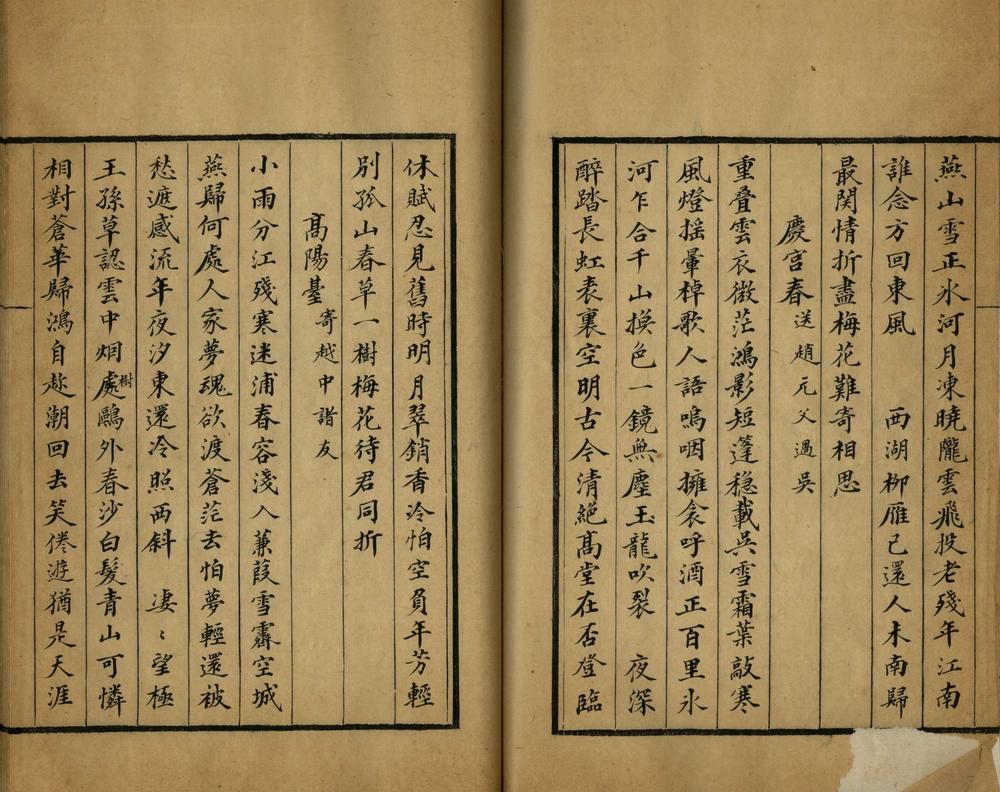 燕山雪正氷河月凍曉隴雲飛投老殘年江南
誰念方回東風　西湖柳雁已還人未南歸
最関情折盡梅花難寄相思
慶宮春送趙元父過吳
重疊雲衣微茫鴻影短篷穏載吳雪霜葉敲寒
風燈揺暈棹歌人語嗚咽擁衾呼酒正百里氷
河乍合千山換色一鏡無塵玉龍吹裂　夜深
醉踏長虹表裏空明古今清絶髙堂在否登臨
休賦忍見舊時明月翠銷香冷怕空負年芳輕
別孤山春草一樹梅花待君同折
髙陽臺寄越中諸友
小雨分江殘寒迷浦春容淺入蒹葭雪霽空城
燕歸何處人家夢魂欲渡蒼茫去怕夢輕還被
愁遮感流年夜汐東還冷照西斜　凄〻望極
王孫草認雲中烟處樹鷗外春沙白髮青山可憐
相對蒼華歸鴻自趂潮回去笑倦遊猶是天涯